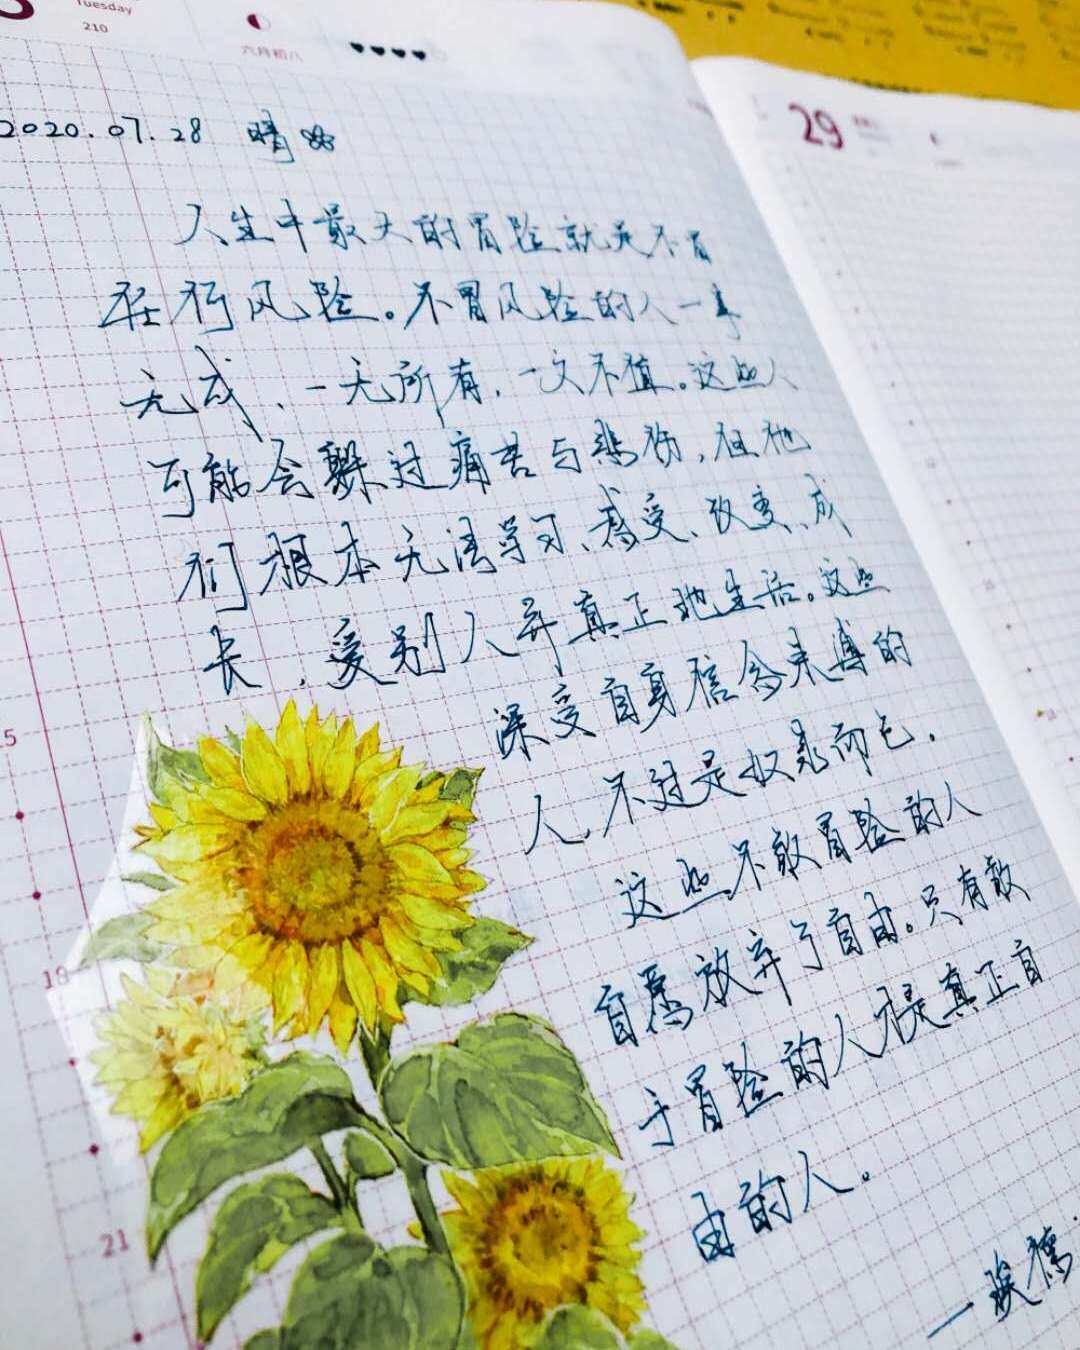 Tuesday
210
六月初八
2020.07.28 晴
29
人生中最大的冒险就是不冒
任何风险。不冒风险的人一事
无成、一无所有，一文不值。这些人
可能会躲过痛苦与悲伤，但他
们根本无法学习、感受、改变、成
长，爱别人并真正地生活。这些
深受自身信念束缚的
人，不过是奴隶而已，
这些不敢冒险的人
自愿放弃了自由。只有敢
于冒险的人才是真正自
由的人。
15
18
21